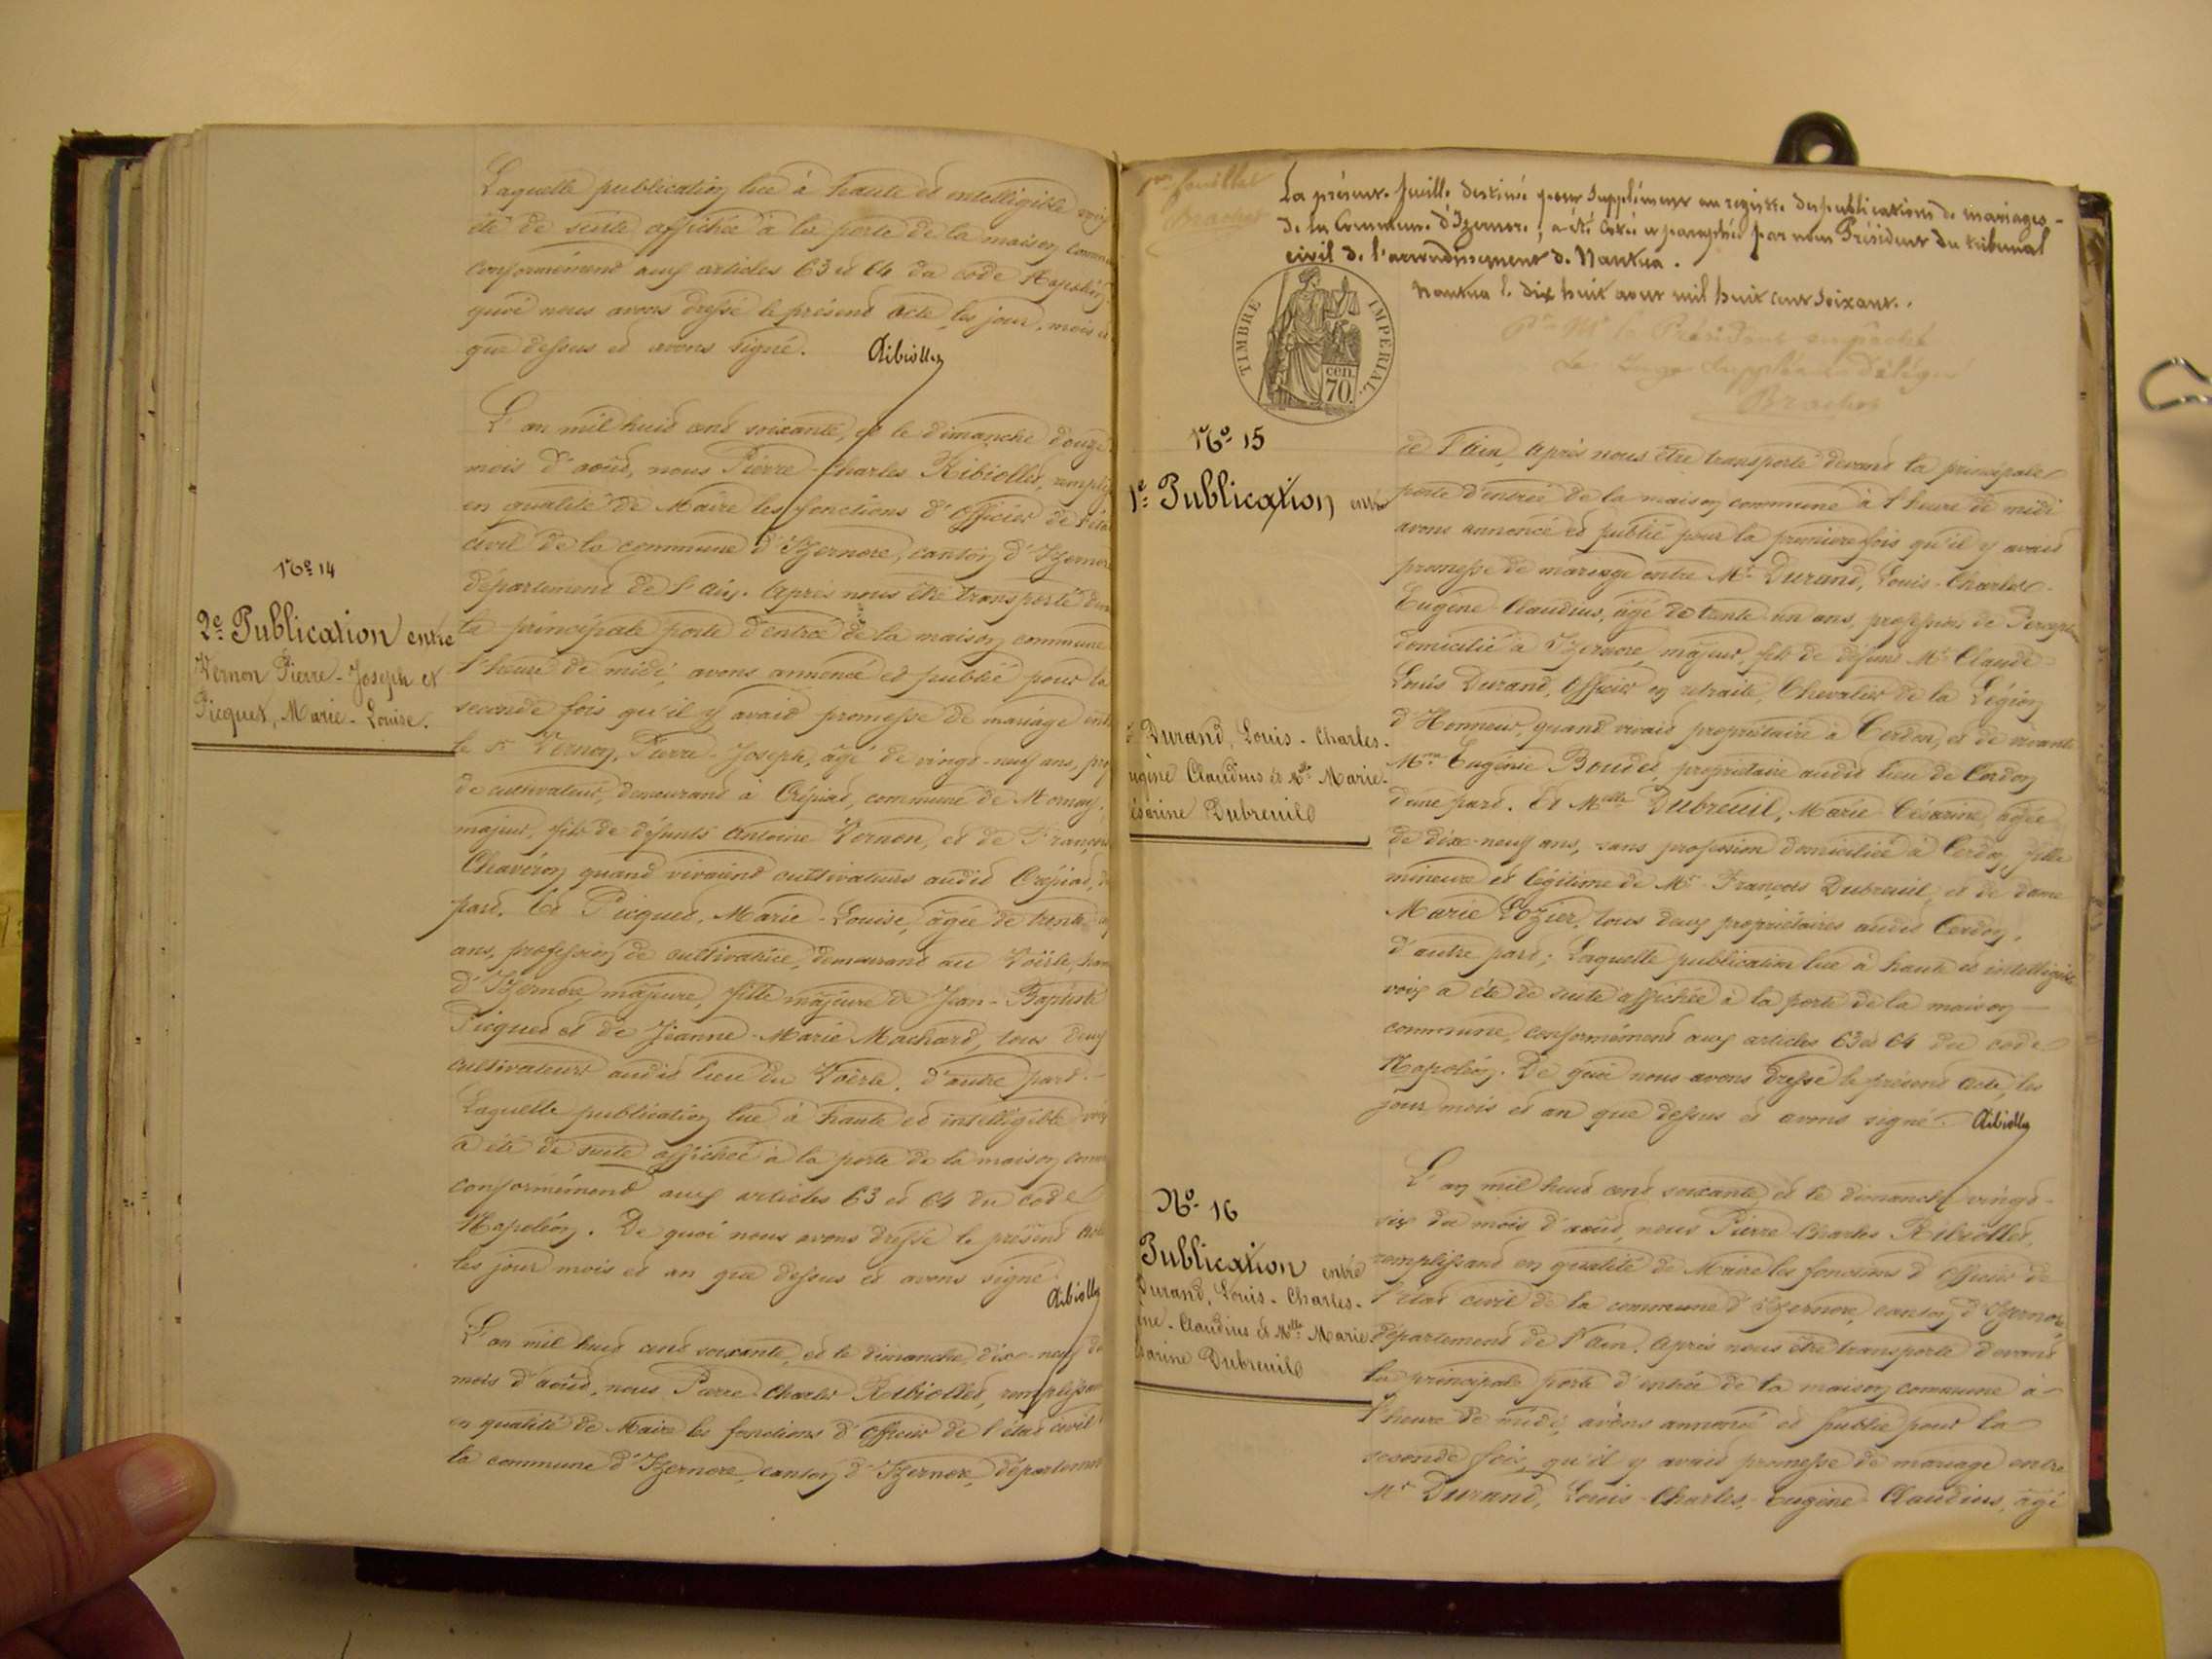 Laquelle publication lue à haute et intelligible voix
été de suite affichée à la porte de la maison commu
conformément aux articles 63 et 64 du code Napoléon
quoi nous avons dressé le présent acte, les jour, mois et
que dessus et avons signé. Ribiollet
L'an mil huit cent soixante, et le dimanche douze
mois d'août, nous Pierre-Charles Ribiollet, rempliss
en qualité de Maire les fonctions d'officier de l'état
civil de la commune d'Izernore, canton d'Izernore
département de l'Ain. Après nous être transporté devan
N° 14
2e Publication entre
Vernon Pierre-Joseph et
Picquet, Marie-Louise.
la principale porte d'entrée de la maison commune
l'heure de midi, avons annoncé et publié pour la
seconde fois qu'il y avait promesse de mariage entre
le Sr Vernon, Pierre-Joseph, âgé de vingt-neuf ans, pro
de cultivateur, demeurant à Crépiat, commune de Mornay,
majeur, fils de défunts Antoine Vernon, et de Françoise
Chavéron quand vivaient cultivateurs audit Crépiat, d
part. Et Picquet, Marie-Louise, âgée de trente
ans, profession de cultivatrice, demeurant au Voërle, ham
d'Izernore, majeure, fille majeure de Jean-Baptiste
Picquet et de Jeanne-Marie Mochard, tous deux
cultivateurs audit lieu du Voërle, d'autre part.-
Laquelle publication lue à haute et intelligible voix
a été de suite affichée à la porte de la maison comm
conformément aux articles 63 et 64 du code
Napoléon. De quoi nous avons dressé le présent acte
les jour mois et an que dessus et avons signé.
Ribiollet
L'an mil huit cent soixante, et le dimanche, dix-neuf du
mois d'août, nous Pierre Charles Ribiollet, remplissan
en qualité de Maire les fonctions d'officier de l'état civil
la commune d'Izernore, canton d'Izernore, département
1er feuillet
Brachet
La présente feuille destinée pour supplément au registre des publications de mariages-
de la Commune d'Izernore, a été cotée et paraphée par nous Président du tribunal
civil de l'arrondissement de Nantua.
Nantua le dix huit aout mil huit cent soixante.
Pr Mr le Président empêché
Le Juge Suppléant délégué
Brachet
TIMBRE IMPERIAL.
cen.
70.
N° 15
1e Publication entre
Durand, Louis-Charles-
ugène Claudius et Mlle Marie-
ésarine Dubreuil
de l'Ain, Après nous être transporté devant la principale
porte d'entrée de la maison commune à l'heure de midi
avons annoncé et publié pour la première fois qu'il y avait
promesse de mariage entre Mr Durand, Louis-Charles-
Eugène Claudius, âgé de trente-un ans, profession de Percepteur
domicilié à Izernore, majeur, fils de défunt Mr Claude-
Louis Durand, Officier en retraite, Chevalier de la Légion
d'Honneur, quand vivait propriétaire à Cerdon, et de vivante
Mme Eugénie Boudet, propriétaire audit lieu de Cerdon
d'une part. Et Melle Dubreuil, Marie Césarine, âgée
de dix-neuf ans, sans profession domiciliée à Cerdon, fille
mineure et légitime de Mr François Dubreuil, et de dame
Marie Lozier, tous deux propriétaires audit Cerdon,
d'autre part; Laquelle publication lue à haute et intelligible
voix a été de suite affichée à la porte de la maison
commune, conformément aux articles 63 et 64 du code
Napoléon. De quoi nous avons dressé le présent acte, les
jour, mois et an que dessus et avons signé. Ribiollet
N° 16
Publication entre
Durand, Louis-Charles-
ine-Claudius et Mlle Marie
sarine Dubreuil
L'an mil huit cent soixante, et le dimanche vingt-
six du mois d'août, nous Pierre Charles Ribiollet,
remplissant en qualité de Maire les fonctions d'officier de
l'état civil de la commune d'Izernore, canton d'Izernore
département de l'Ain. Après nous être transporté devant
la principale porte d'entrée de la maison commune à
l'heure de midi, avons annoncé et publié pour la
seconde fois, qu'il y avait promesse de mariage entre
Mr Durand, Louis-Charles-Eugène-Claudius, âgé